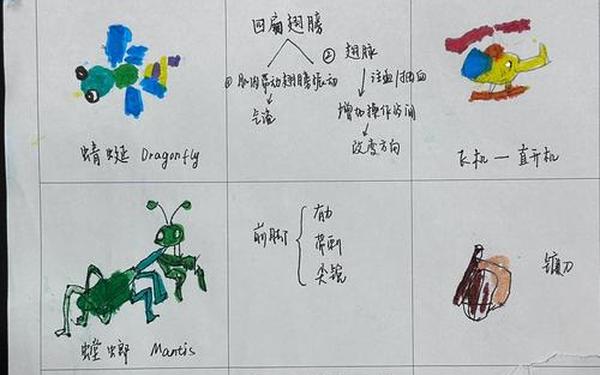 四扇翅膀
① 肌肉带动翅膀振动
② 翅脉
注血/抽血
增加操作空间
改变方向
蜻蜓 Dragonfly
飞机 — 直升机
前脚
有力
带刺
尖锐
镰刀
螳螂 Mantis